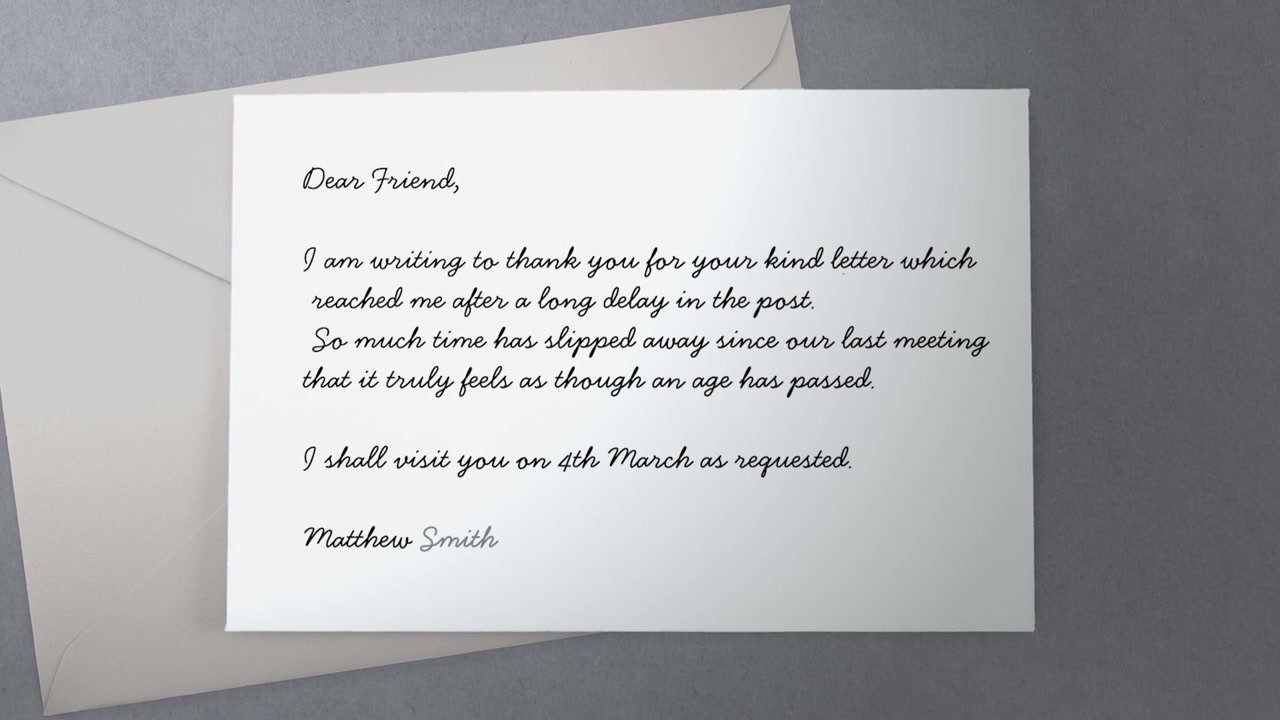 Dear Friend,
I am writing to thank you for your kind letter which
reached me after a long delay in the post.
So much time has slipped away since our last meeting
that it truly feels as though an age has passed.
I shall visit you on 4th March as requested.
Matthew Smith